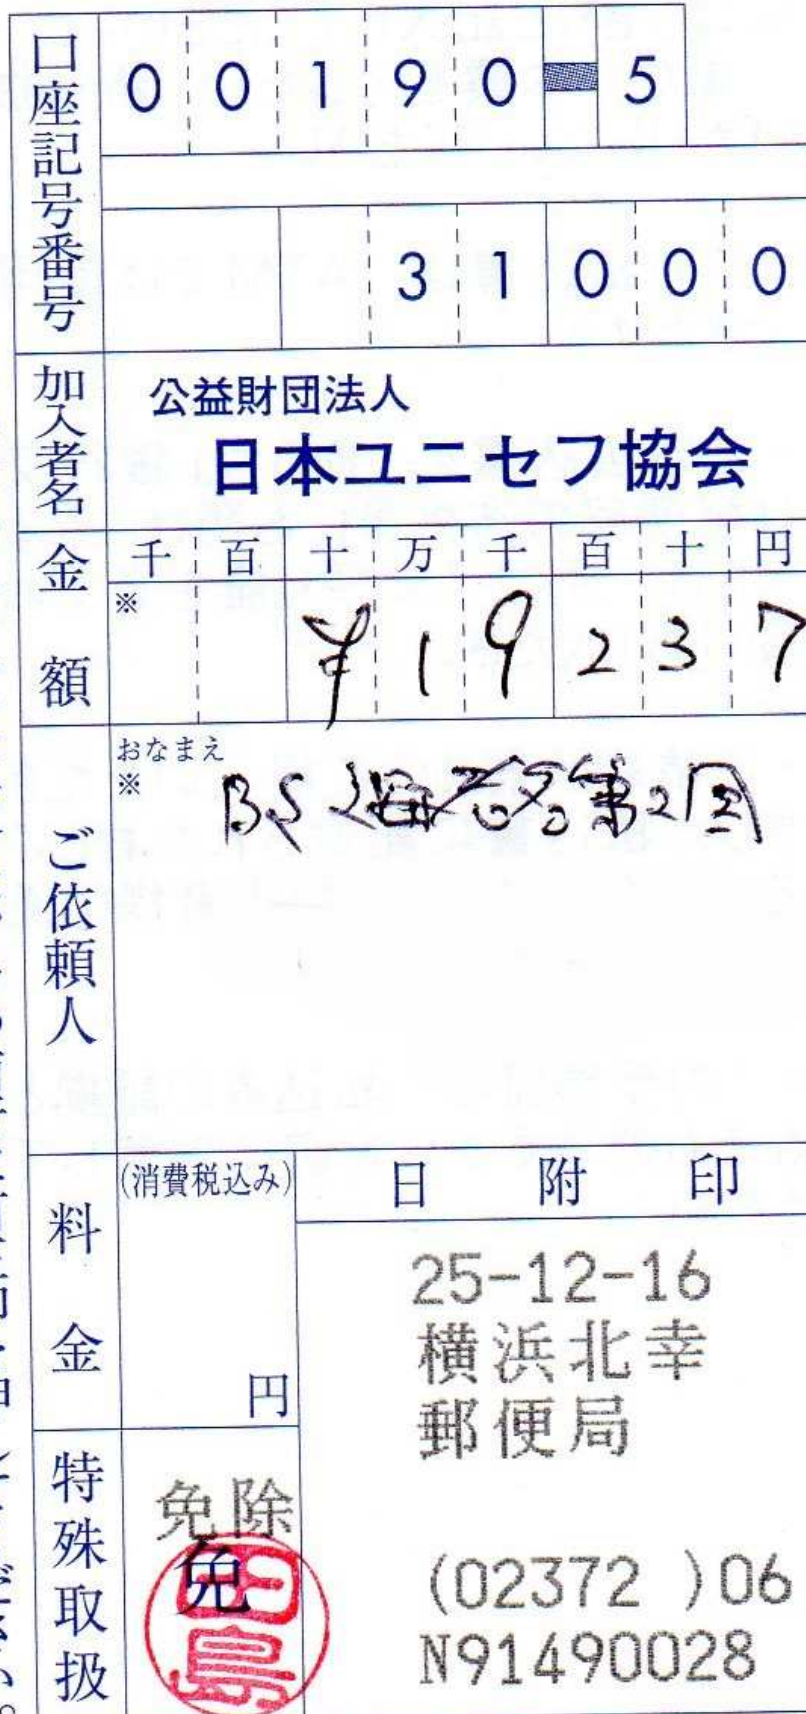 口座記号番号
00190-5
31000
加入者名
公益財団法人
日本ユニセフ協会
金額
千百十万千百十円
※
¥19237
ご依頼人
おなまえ
※
BS海老名第2団
料金
(消費税込み)
円
日附印
25-12-16
横浜北幸
郵便局
(02372 )06
N91490028
特殊取扱
免除
免
田島